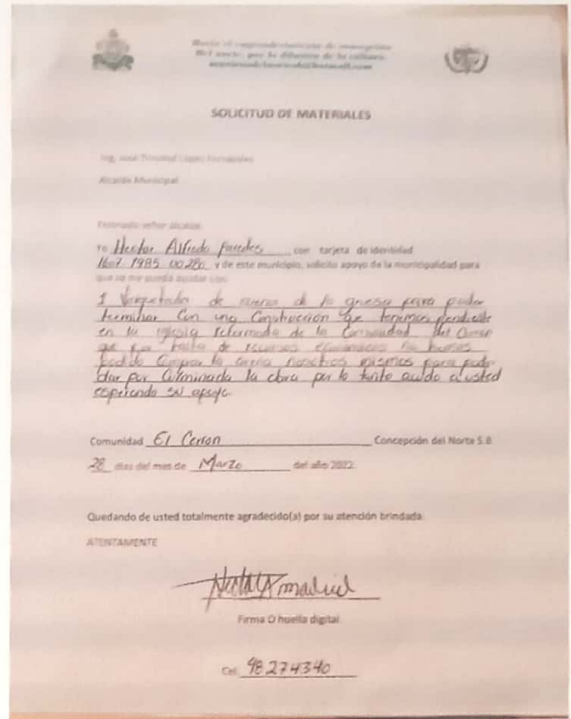 Hacia el emprendimiento de concepción
Del norte, por la difusión de la cultura.
SOLICITUD DE MATERIALES
Ing. José Trinidad López Fernández
Alcalde Municipal
Estimado señor alcalde
Yo Hector Alfredo Paredes con tarjeta de identidad
1607 1985 00280 y de este municipio, solicito apoyo de la municipalidad para
que se me pueda ayudar con:
1 Volquetada de arena de la gruesa para poder
terminar Con una Construccion que tenemos pendiente
en la iglesia reformada de la Comunidad del Cerron
que por falta de recursos economicos no hemos
podido Comprar la arena nosotros mismos para poder
dar por Culminada la obra por lo tanto acudo a usted
esperando su apoyo.
Comunidad El Cerron Concepción del Norte S.B
28 días del mes de Marzo del año 2022.
Quedando de usted totalmente agradecido(a) por su atención brindada.
ATENTAMENTE
Firma O huella digital
Cel. 98274340